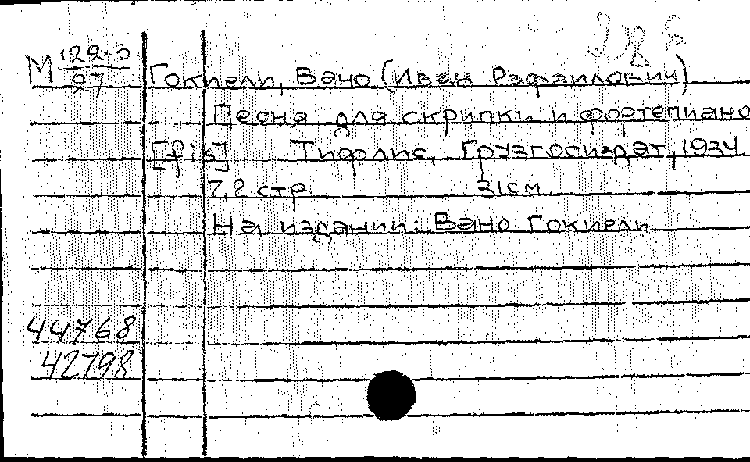 М 129-0
97
Гокиели, Вано (Иван Рафаилович)
Песня для скрипки и фортепиано
[fis] Тифлис, Грузгосиздат, 1934
7,8 стр. 31см
На издании: Вано Гокиели
44768
42798